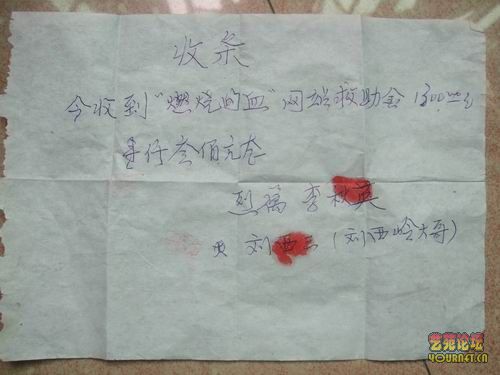 收条
今收到“燃烧的血”网站救助金1300元
壹仟叁佰元整
烈属 李秋英
刘西云（刘西岭大哥）
艺苑论坛
YOURNET.CN